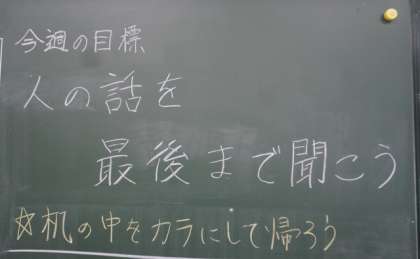 今週の目標
人の話を
最後まで聞こう
☆机の中をカラにして帰ろう